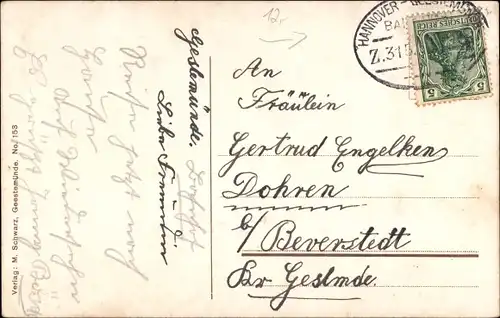 12,-
HANNOVER - GEESTEMÜNDE
BAHNPOST
Z.315
DEUTSCHES REICH
5 5
An
Fräulein
Gertrud Engelken
Dohren
b/ Beverstedt
Kr. Gestmde.
Geestemünde.
Liebe Freundin
Reise jetzt nach
Auf Wiedersehn
Es grüßt
Verlag: M. Schwarz, Geestemünde. No. 153